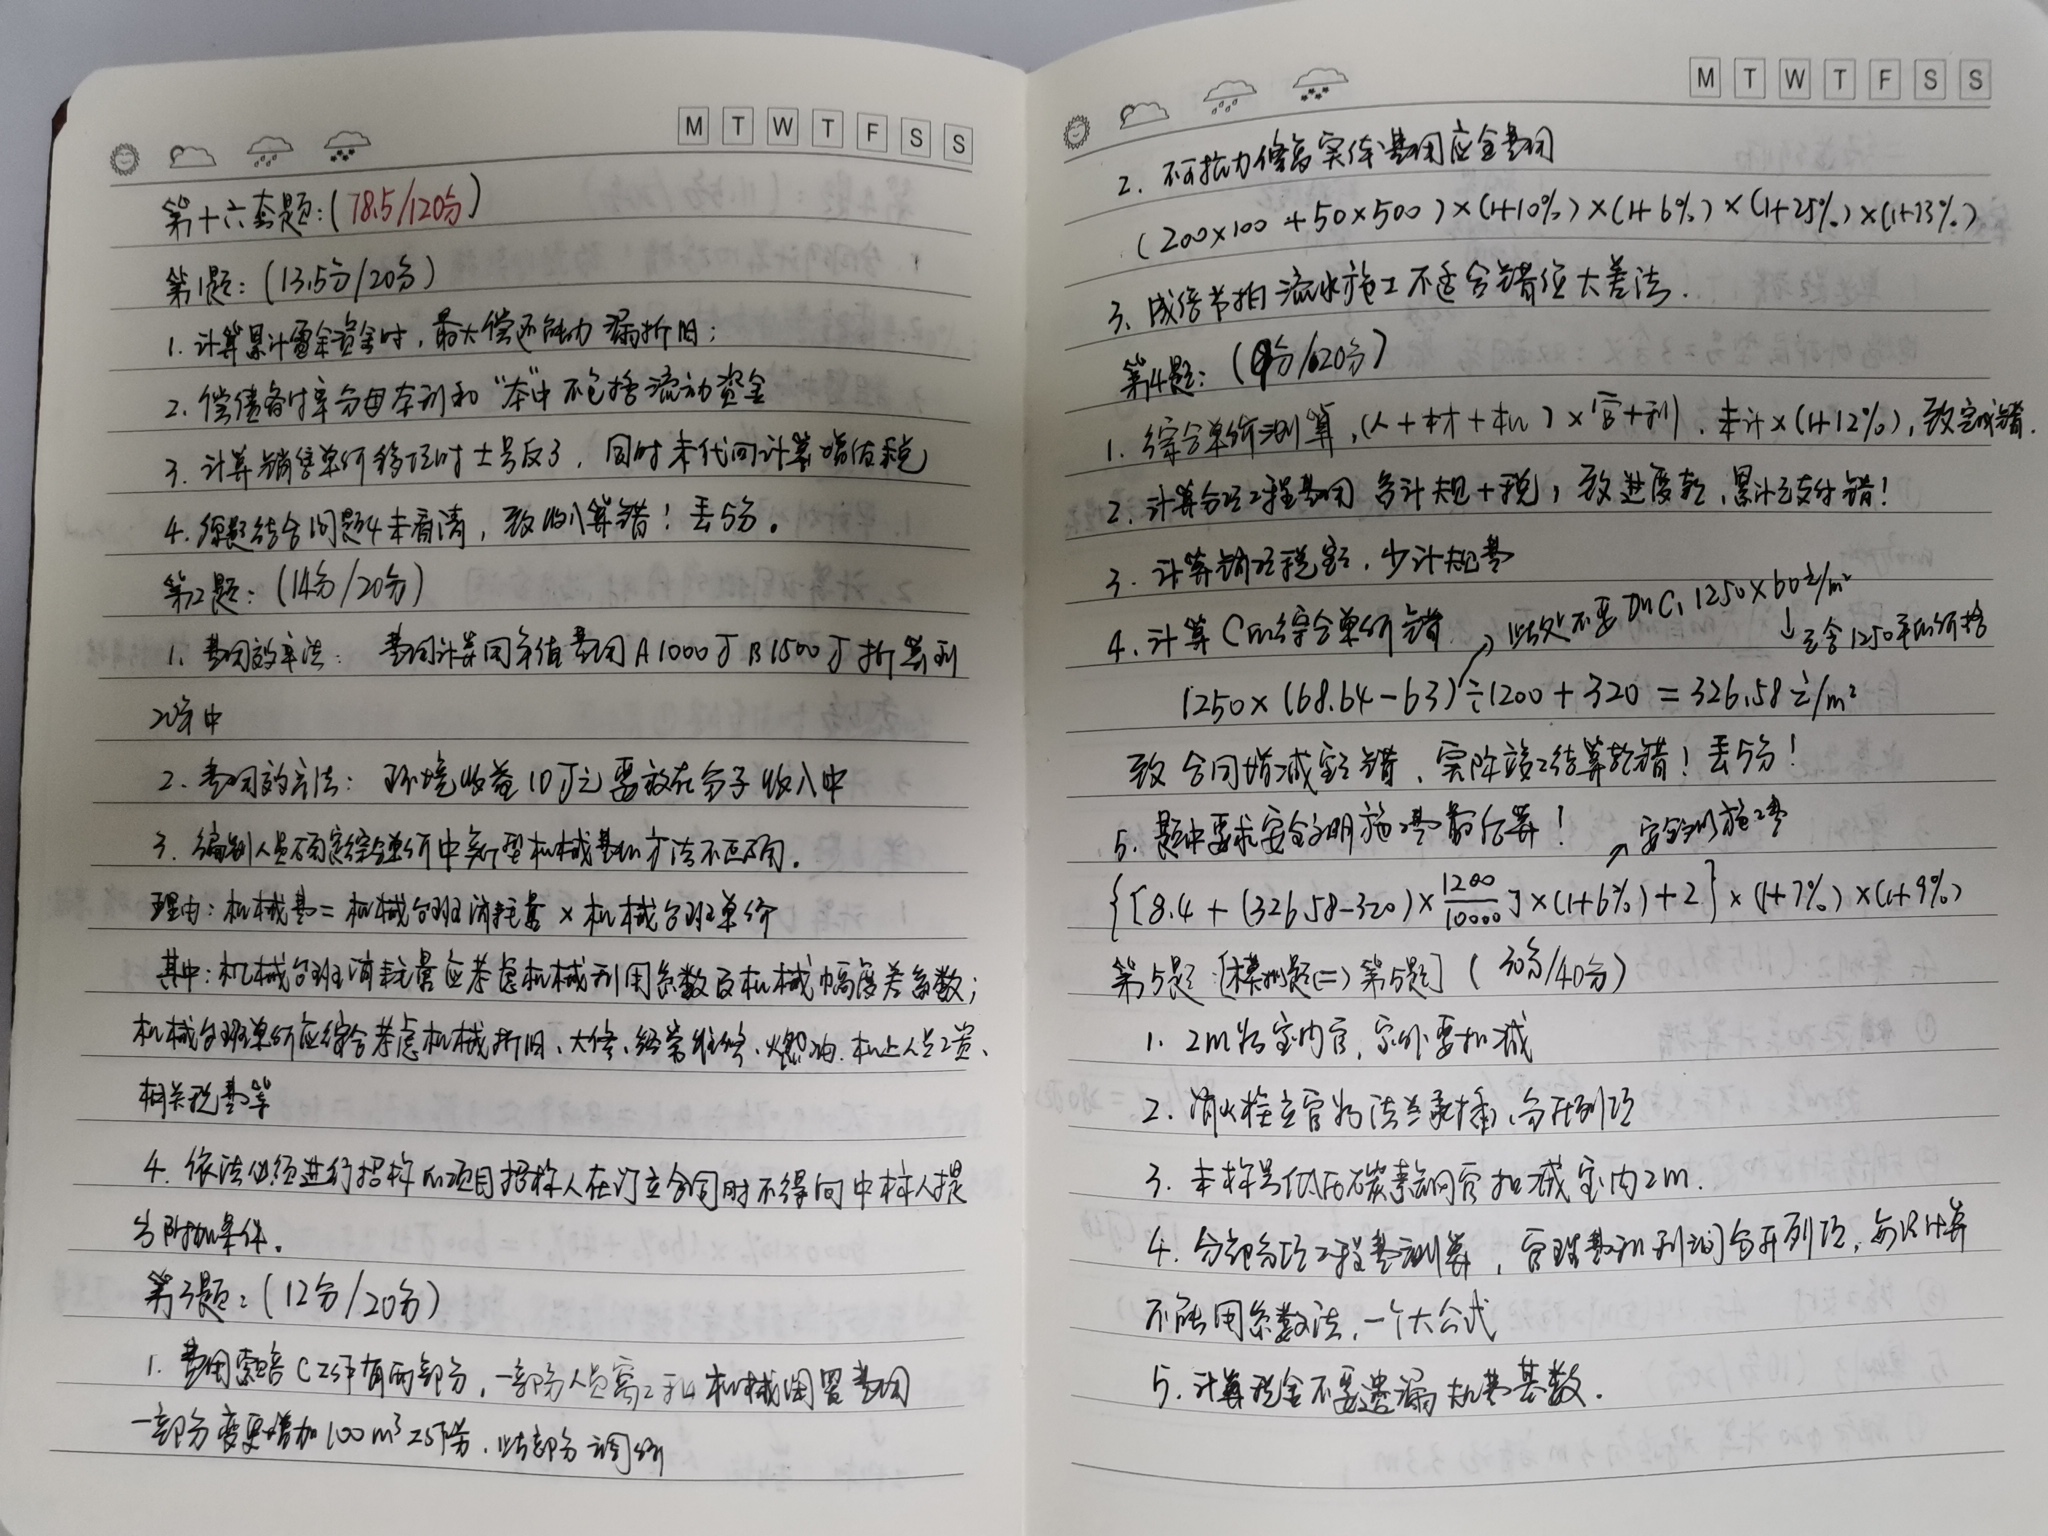 M T W T F S S
第十六套题:(78.5/120分)
第1题:(13.5分/20分)
1.计算累计盈余资金时,最大偿还能力漏折旧;
2.偿债备付率分母本利和"本"中不包括流动资金
3.计算销售单价移项时±号反了,同时未代回计算增值税
4.原题结合问题4未看清,致收入算错!丢5分。
第2题:(14分/20分)
1.费用效率法: 费用计算同年值费用A1000万B1500万折算到
20年中
2.费用效率法: 环境收益10万元要放在分子收入中
3.编制人员不确定综合单价中新型机械费的方法不正确.
理由:机械费=机械台班消耗量×机械台班单价
其中:机械台班消耗量应考虑机械利用系数及机械幅度差系数;
机械台班单价应综合考虑机械折旧、大修、经常维修、燃油、机上人员工资、
相关税费等
4.依法必须进行招标的项目招标人在订立合同时不得向中标人提
出附加条件.
第3题:(12分/20分)
1.费用索赔C工作有两部分,一部分人员窝工和机械闲置费用
一部分变更增加100m³工作, 此部分调价
M T W T F S S
2.不可抗力修复实体费用应全费用
(200×100+50×500)×(1+10%)×(1+6%)×(1+25%)×(1+13%)
3.成倍节拍流水施工不适合错位大差法.
第4题:(9分/20分)
1.综合单价测算,(人+材+机)×(管+利).未计×(1+12%),致完成错.
2.计算分项工程费用 多计规+税,致进度款,累计已支付错!
3.计算销项税额,少计规费
4.计算C的综合单价错. → 此处不要 1250×60元/m²
↓已含1250平的价格
1250×(68.64-63)÷1200+320=326.58元/m²
致合同增减额错、实际竣工结算款错!丢5分!
5.题中要求安全文明施工费最后算! 安全文明施工费
{[8.4+(326.58-320)×1200/10000]×(1+6%)+2}×(1+7%)×(1+9%)
第5题[模拟题(二)第5题](30分/40分)
1. 2m为室内管,室外要扣减
2.消火栓立管为法兰承插,分开列项
3.本标号低压碳素钢管扣减室内2m.
4.分部分项工程费测算,管理费和利润分开列项,每次计算
不能用系数法,一个大公式
5.计算税金不要遗漏规费基数.